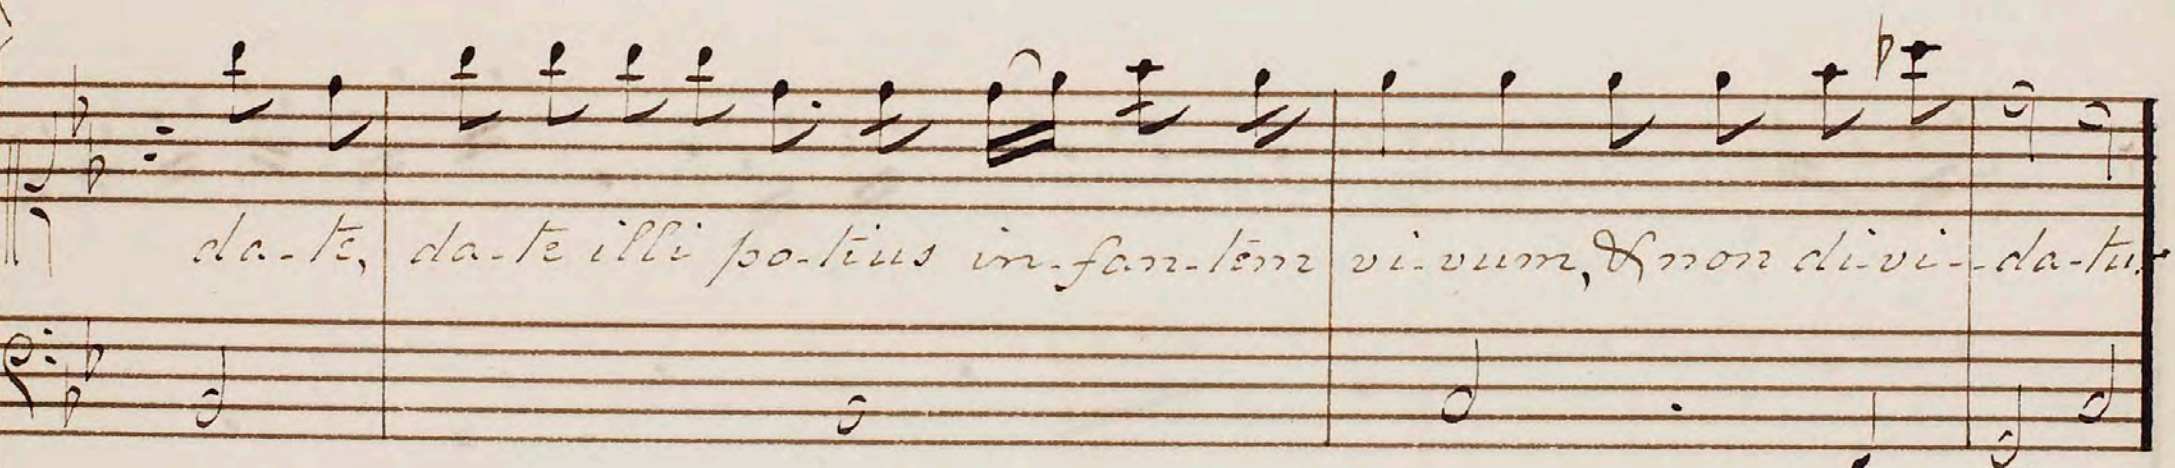 da-te, da-te illi po-tius in-fan-tem vi-vum, & non di-vi--da-tur